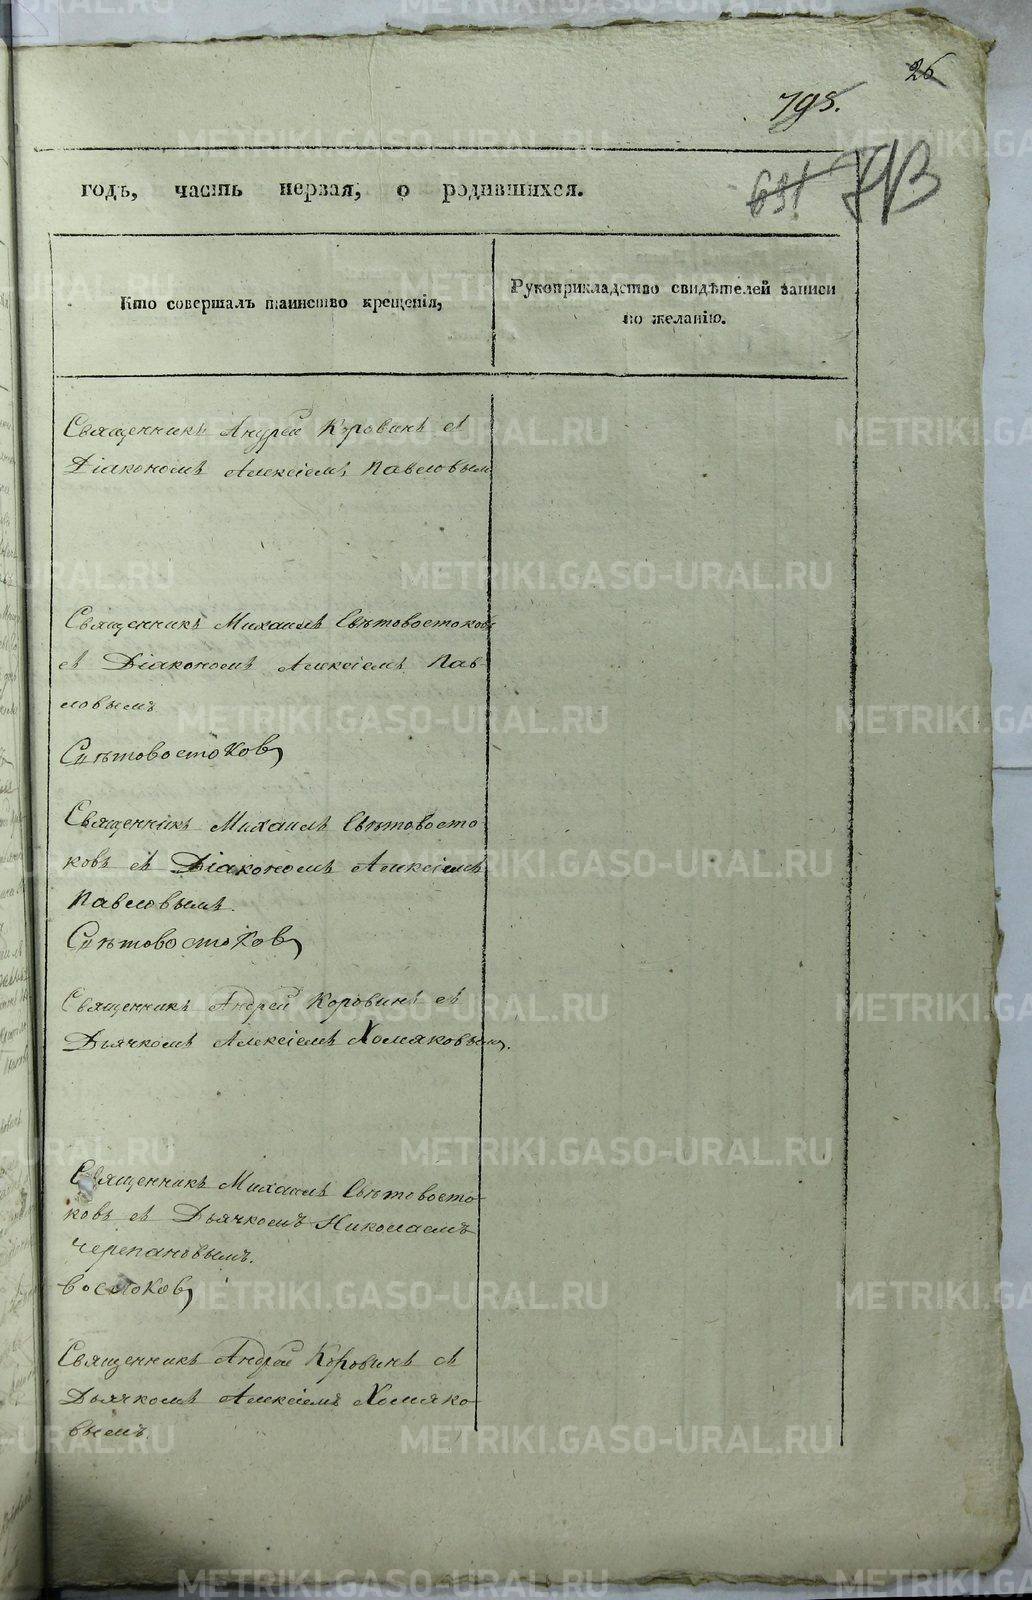 26
795.
631 713
годъ, часть первая, о родившихся.
Кто совершалъ таинство крещенія,
Рукоприкладство свидѣтелей записи
по желанію.
Священникъ Андрей Коровинъ съ
Діакономъ Алексіемъ Павловым
Священникъ Михаилъ Свѣтовостоковъ
съ Діакономъ Алексіемъ Пав-
ловымъ
Свѣтовостоковъ
Священникъ Михаилъ Свѣтовосто
ковъ съ Діакономъ Алексіемъ
Павловымъ.
Свѣтовостоковъ
Священникъ Андрей Коровинъ съ
Дьячкомъ Алексіемъ Хомяковымъ.
Священникъ Михаилъ Свѣтовосто-
ковъ съ Дьячкомъ Николаемъ
Черепановымъ.
востоковъ
Священникъ Андрей Коровинъ съ
Дьячкомъ Алексіемъ Хомяко-
вымъ.
METRIKI.GASO-URAL.RU